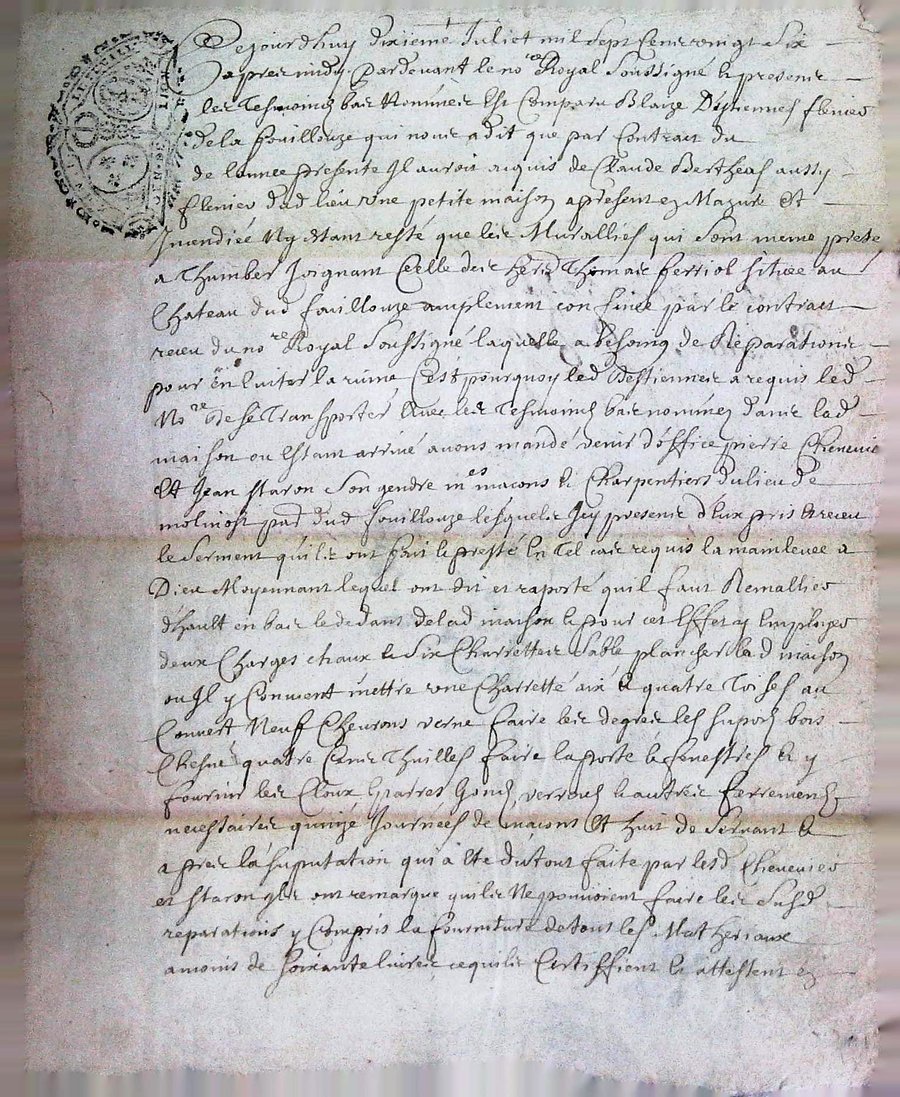 Cejourdhuy dixieme Juliet mil sept cent vingt six
apres midy pardevant le no.re Royal soussigné & presents
les tesmoins bas nommes est comparu Blaize D'estiennes
de la fouillouze qui nous a dit que par contract du
de lannee presente Il auroit aquis de Claude Bertheas aussy
dud lieu une petite maison apresent en mazure et
Incendiée Ny Estant resté que les Murallies qui sont meme prete
a Thumber Joignant Celle des her.s Thomas ferriol située au
Chateau dud fouillouze amplement confinée par le contract
receu du no.re Royal soussigné laquelle a besoing de Reparations
pour en Eviter la ruine C'est pourquoy led Destiennes a requis led
No.re de se Transporter avec les Tesmoins bas nommez dans lad
maison ou Estant arrivé avons mandé venir d'office pierre Chenevie
et Jean staron son gendre m.es macons & Charpentiers du lieu de
molinost par.o dud fouillouze lesquels Icy presents d'Eux pris & receu
le serment quils ont fait & presté En tel cas requis la main levee a
Dieu Moyennant lequel ont dit et raporté quil faut Remallier
d'hault en bas le dedans de lad maison & pour cet Effet y Employer
deux Charges chaux & six Charrettes sable plancher lad maison
ou Il y Convient mettre une Charretté aix & quatre Toises au
Couvert Neuf Chevrons verne faire les degres les supors bois
Chesne quatre Cents Thuilles faire la porte & fenestres & y
fournir les Cloux Gonds verrouls & autres ferrements
necessaires quinze Journées de macons et huit de servant &
apres la supputation qui a Eté du tout faite par lesd Chenevier
et staron Ils ont remarque quils Ne pouvoient faire les susd
reparations y Compris la fourniture de tous les Matheriaux
a moins de soixante livres ce quils Certiffient & attestent en